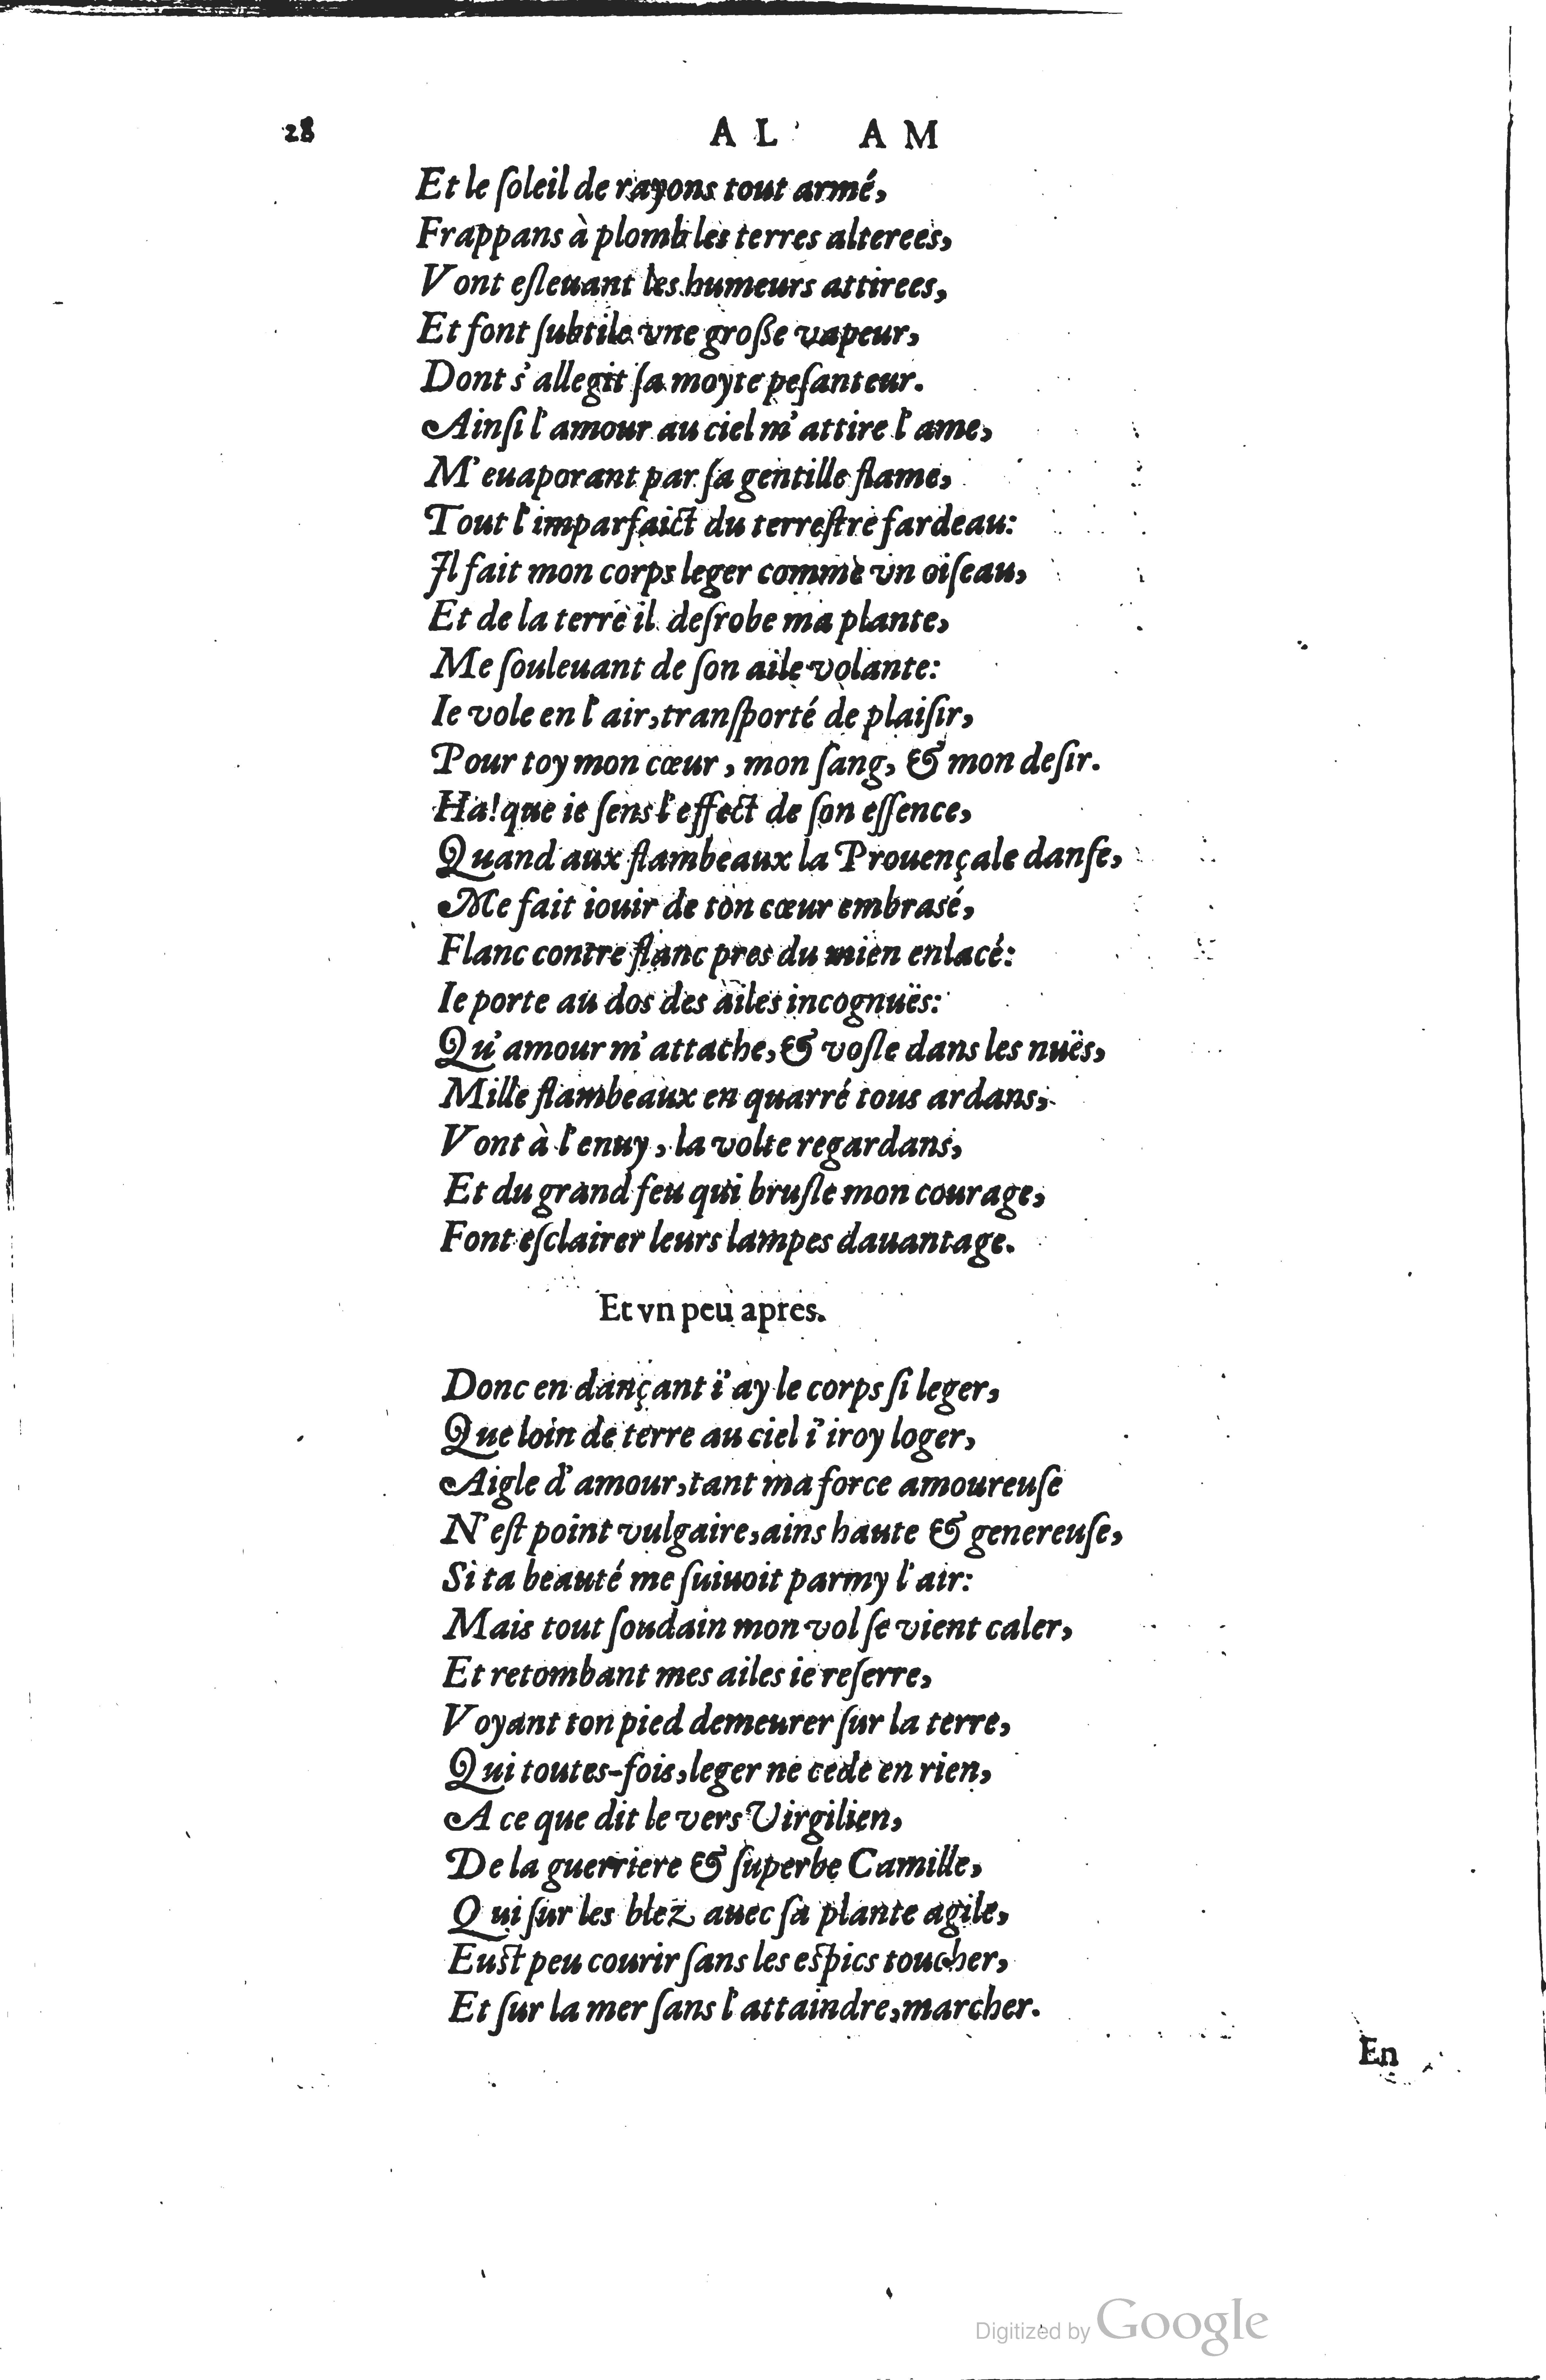 28 AL AM
Et le ſoleil de rayons tout armé,
Frappans à plomb les terres alterees,
Vont eſleuant les humeurs attirees,
Et font ſubtile vne groſſe vapeur,
Dont s'allegit ſa moyte peſanteur.
Ainſi l'amour au ciel m'attire l'ame,
M'euaporant par ſa gentille flame,
Tout l'imparfaict du terreſtre fardeau:
Il fait mon corps leger comme vn oiſeau,
Et de la terre il deſrobe ma plante,
Me ſouleuant de ſon aile volante:
Ie vole en l'air, tranſporté de plaiſir,
Pour toy mon cœur, mon ſang, & mon deſir.
Ha! que ie ſens l'effect de ſon eſſence,
Quand aux flambeaux la Prouençale danſe,
Me fait iouir de ton cœur embrasé,
Flanc contre flanc pres du mien enlacé:
Ie porte au dos des ailes incognuës:
Qu'amour m'attache, & voſle dans les nuës,
Mille flambeaux en quarré tous ardans,
Vont à l'enuy, la volte regardans,
Et du grand feu qui bruſle mon courage,
Font eſclairer leurs lampes dauantage.
Et vn peu apres.
Donc en dançant i'ay le corps ſi leger,
Que loin de terre au ciel i'iroy loger,
Aigle d'amour, tant ma force amoureuſe
N'eſt point vulgaire, ains haute & genereuſe,
Si ta beauté me ſuiuoit parmy l'air:
Mais tout ſoudain mon vol ſe vient caler,
Et retombant mes ailes ie reſerre,
Voyant ton pied demeurer ſur la terre,
Qui toutes-fois, leger ne cede en rien,
A ce que dit le vers Virgilien,
De la guerriere & ſuperbe Camille,
Qui ſur les blez auec ſa plante agile,
Euſt peu courir ſans les eſpics toucher,
Et ſur la mer ſans l'attaindre, marcher.
En
Digitized by Google